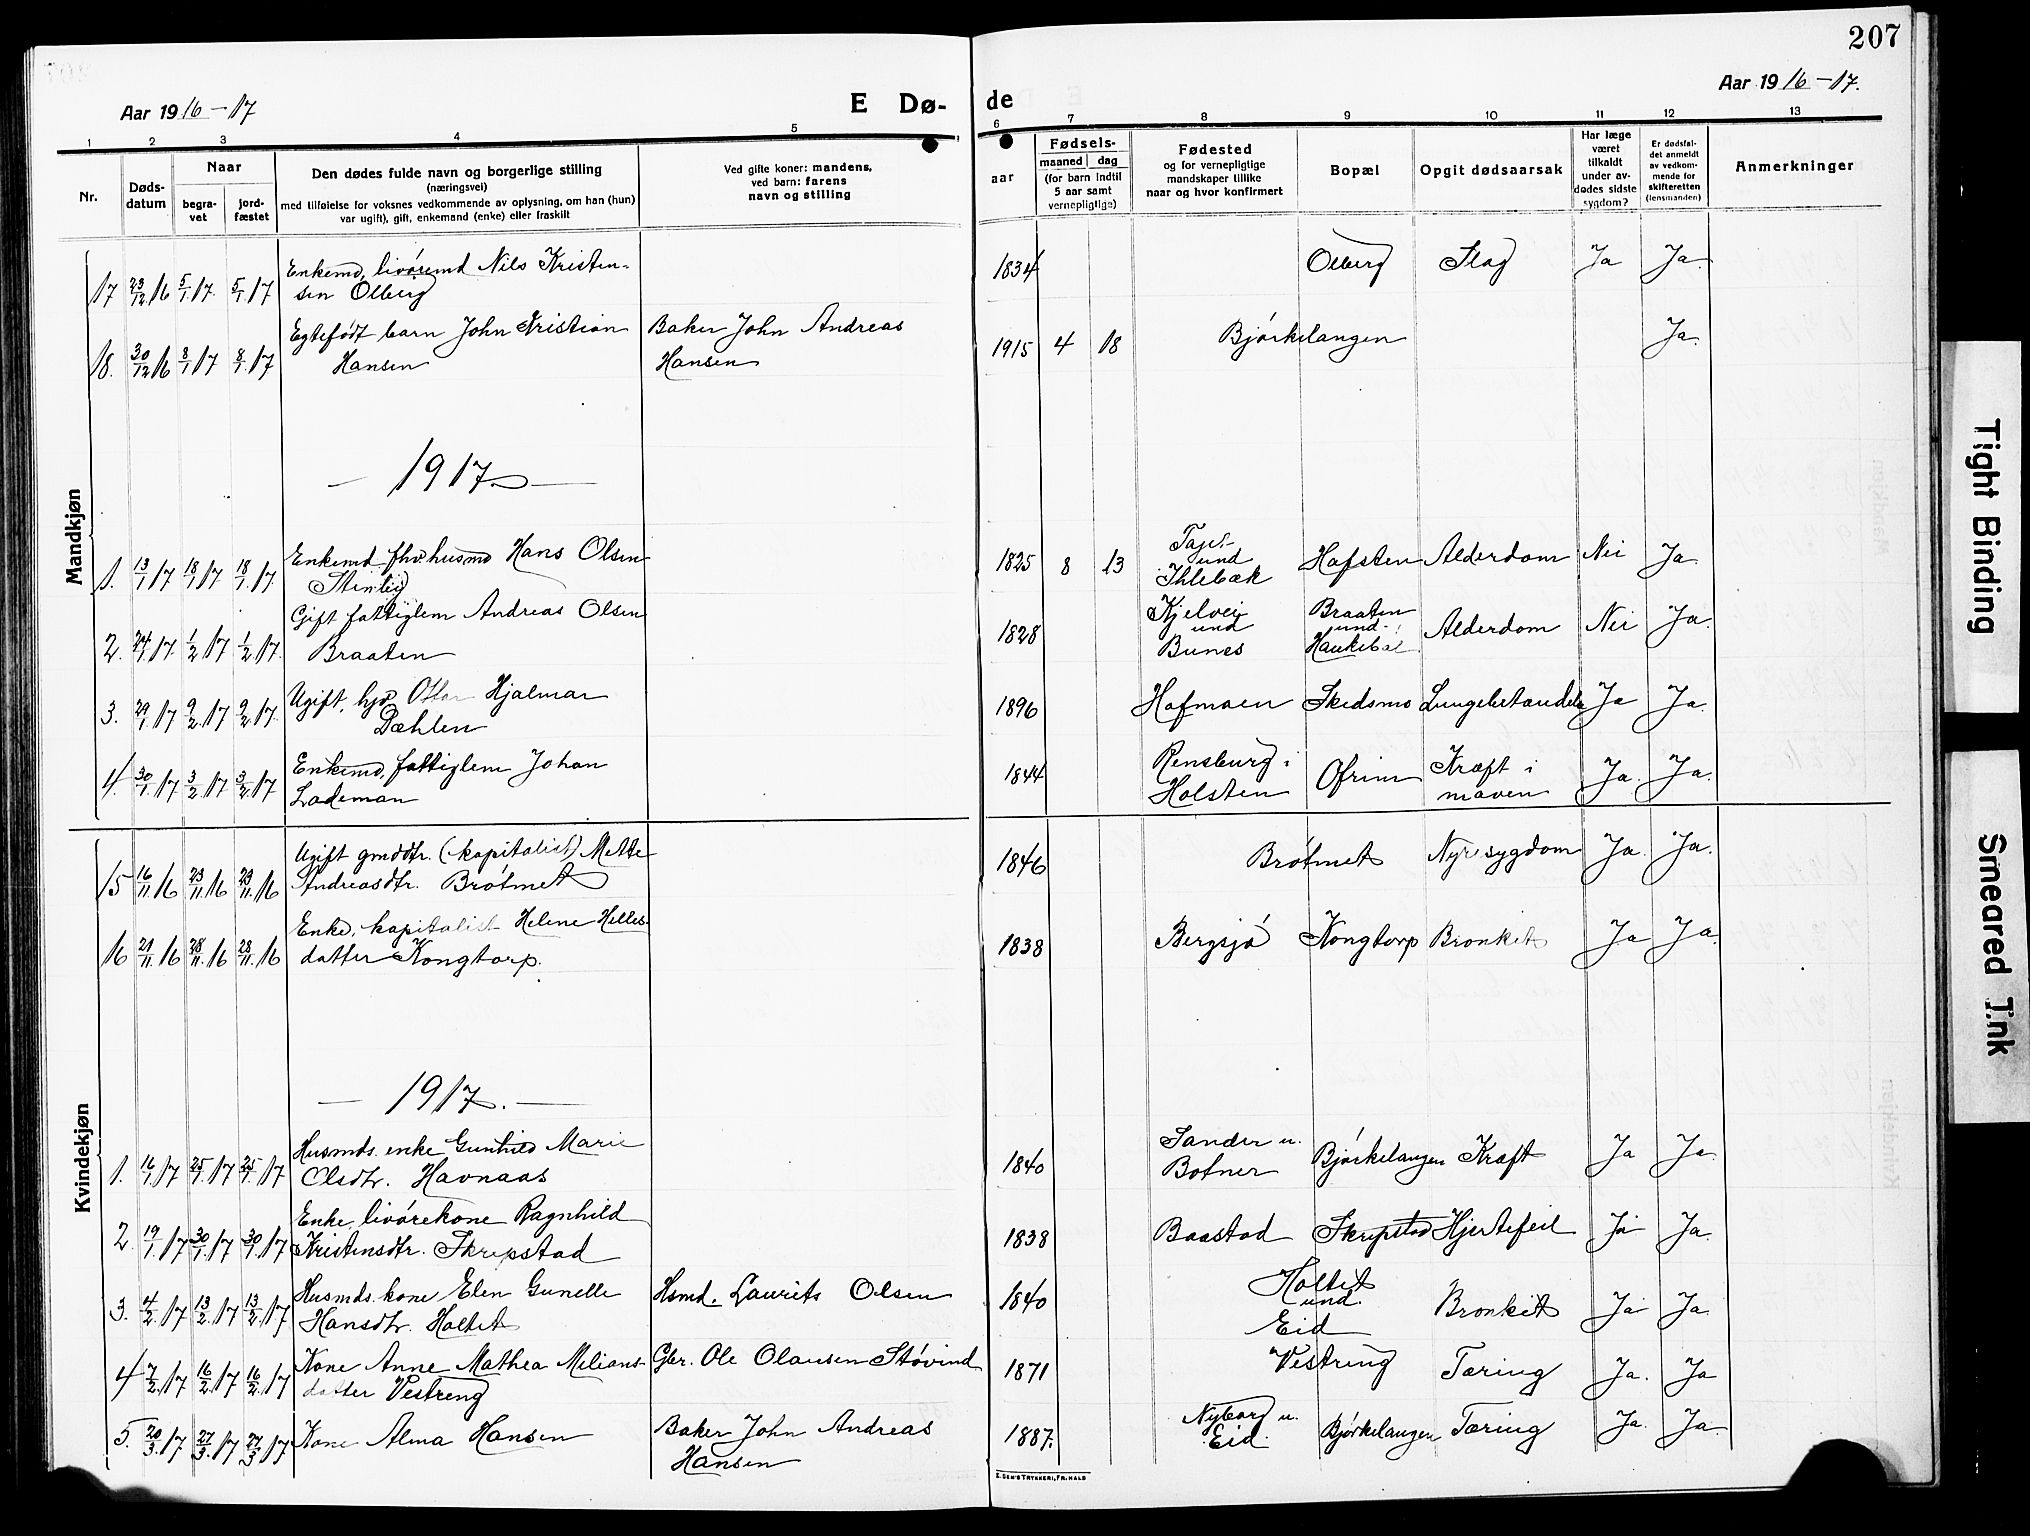 207
Aar 1916-17
E Dø-
de
Aar 1916-17.
1 2 3 4 5 6 7 8 9 10 11 12 13
Nr.
Døds-
datum
Naar
begra-
vet
jord-
fæstet
Den dødes fulde navn og borgerlige stilling
(næringsvei)
med tilføielse for voksnes vedkommende av oplysning, om han (hun)
var ugift), gift, enkemand (enke) eller fraskilt
Ved gifte koner: mandens,
ved barn: farens
navn og stilling
aar
Fødsels-
maaned dag
(for barn indtil
5 aar samt
vernepligtige)
Fødested
og for vernepligtige
mandskaper tillike
naar og hvor konfirmert
Bopæl
Opgit dødsaarsak
Har læge
været
tilkaldt
under av-
dødes sidste
sygdom?
Er dødsfal-
det anmeldt
av vedkom-
mende for
skifteretten
(lensmanden)
Anmerkninger
Mandkjøn
Enkemd, livøremd Nils Kristen-
17 23/12.16 5/1.17. 5/1.17 sen Olberg 1834 Olberg Slag Ja Ja.
Egtefødt barn John Kristian Baker John Andreas
18. 30/12 16 8/1 17 8/1.17 Hansen Hansen 1915 4 18 Bjørkelangen Ja.
- 1917. -
Enkemd. fhv. husmd Hans Olsen
1. 13/1 17 18/1 17 18/1.17. Stenlid 1825 8 13 Tajet und Ihlebæk Hafsten Alderdom Nei Ja
Gift fattiglem Andreas Olsen
2. 24/1.17. 1/2 17 1/2 17. Braaten 1828 Kjelvei und Bunes Braaten und. Alderdom Nei Ja.
Ugift, Hjalmar
3. 29/1 17 9/2.17 9/2.17. Dæhlen 1896 Hofmoen Skedsmo Ja Ja.
Enkemd, fattiglem Johan
4. 30/1.17 3/2 17 3/2.17 Lademan 1844 Rensburg i Holsten Ofrim Kræft i maven Ja. Ja.
Kvindekjøn
Ugift gmddtr. (kapitalist) Mette
15 16/11 16 23/11.16 23/11.16 Andreasdtr. Brøtmet 1846 Brøtmet Nyresygdom Ja. Ja.
Enke, kapitalist Helene Helles-
16 21/11.16 28/11.16 28/11.16 datter Kongtorp. 1838 Bergsjø Kongtorp Bronkit Ja Ja.
- 1917. -
Husmds. enke Gunhild Marie
1. 16/1.17 25/1.17 25/1.17 Olsdtr. Havnaas 1840 Sander u. Botner Bjørkelangen Kræft Ja Ja.
Enke, livørekone Ragnhild
2. 19/1.17 30/1.17 30/1.17 Kristensdtr. Skrepstad 1838 Baastad Skrepstad Hjertefeil Ja Ja
Husmds. kone Elen Gunelle Hsmd. Laurits Olsen
3. 4/2.17 13/2.17 13/2.17 Hansdtr. Holtet 1840 Holtet und. Eid Bronkit Ja Ja
Kone Anne Mathea Milians- Gbr. Ole Olausen Støvind
4 7/2.17 16/2.17 16/2.17 datter Vestreng 1871 Vestreng Tæring Ja. Ja
5. 20/3.17 27/3.17 27/3 17 Kone Alma Hansen Baker John Andreas 1887. Nyborg u. Eid. Bjørkelangen Tæring Ja. Ja.
Hansen
E. SEM'S TRYKKERI, FR. HALD
Tight Binding
Smeared Ink